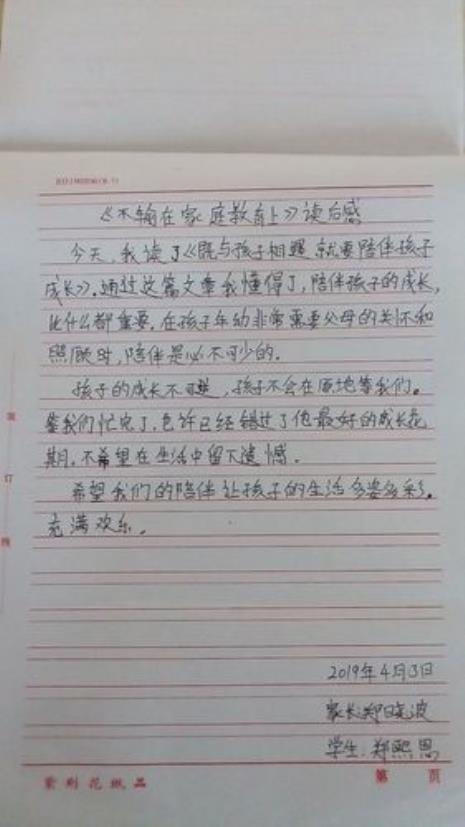 《不输在家庭教育上》读后感
今天,我读了《既与孩子相遇 就要陪伴孩子
成长》。通过这篇文章我懂得了,陪伴孩子的成长,
比什么都重要。在孩子年幼非常需要父母的关怀和
照顾时,陪伴是必不可少的。
孩子的成长不可逆,孩子不会在原地等我们。
等我们忙完了,也许已经错过了他最好的成长花
期。不希望在生活中留下遗憾。
希望我们的陪伴让孩子的生活多姿多彩。
充满欢乐。
装
订
线
2019年4月3日
家长:郑晓波
学生:郑熙恩
紫荆花纸品
第 页